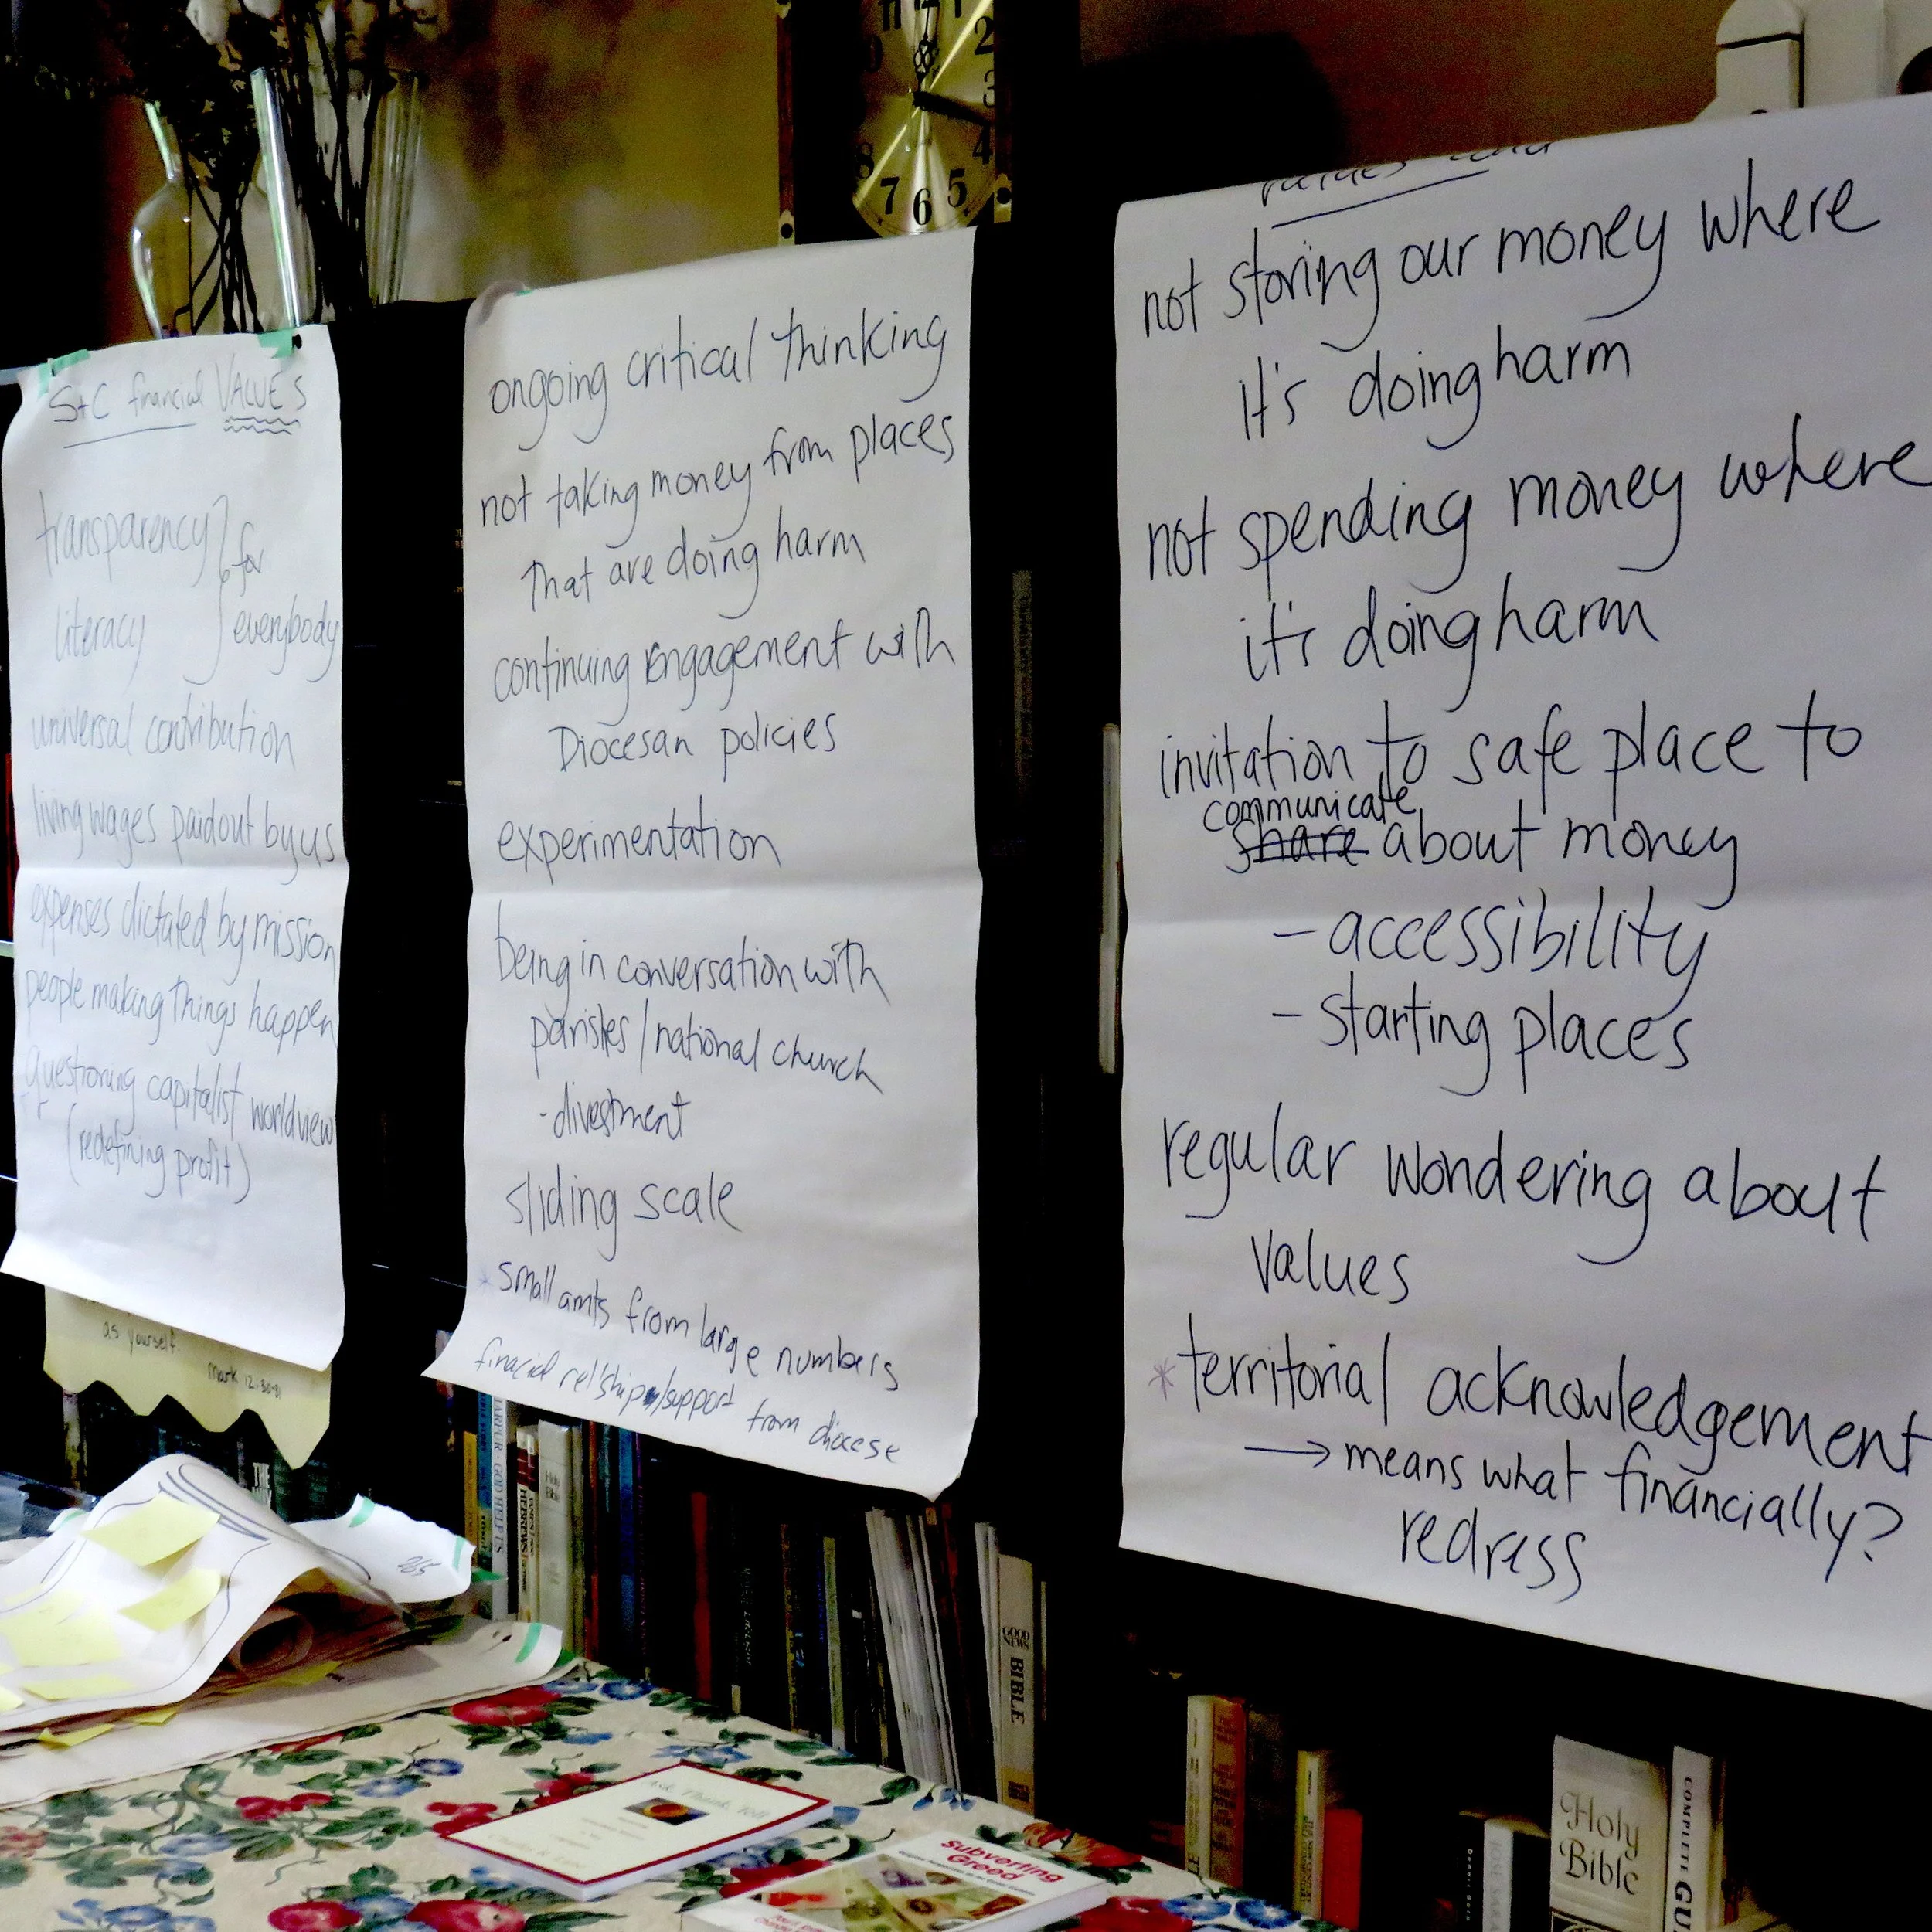 S+C financial VALUES
transparency } for
literacy everybody
universal contribution
living wages paid out by us
expenses dictated by mission
people making things happen
questioning capitalist worldview
(redefining profit)
as yourself.
Mark 12:30-31
ongoing critical thinking
not taking money from places
that are doing harm
continuing engagement with
Diocesan policies
experimentation
being in conversation with
parishes / national church
- divestment
sliding scale
* small amts from large numbers
financial rel'ship/support from diocese
values
not storing our money where
it's doing harm
not spending money where
it's doing harm
invitation to safe place to
communicate
share about money
- accessibility
- starting places
regular wondering about
values
* territorial acknowledgement
→ means what financially?
redress
11 12 1
2
9 3
8 4
7 6 5
265
THE
GOD HELP US
Holy Bible
HEBREWS
GOOD NEWS
BIBLE
Holy
Bible
COMPLETE GU
Ask, Thank, Tell
Subverting
Greed